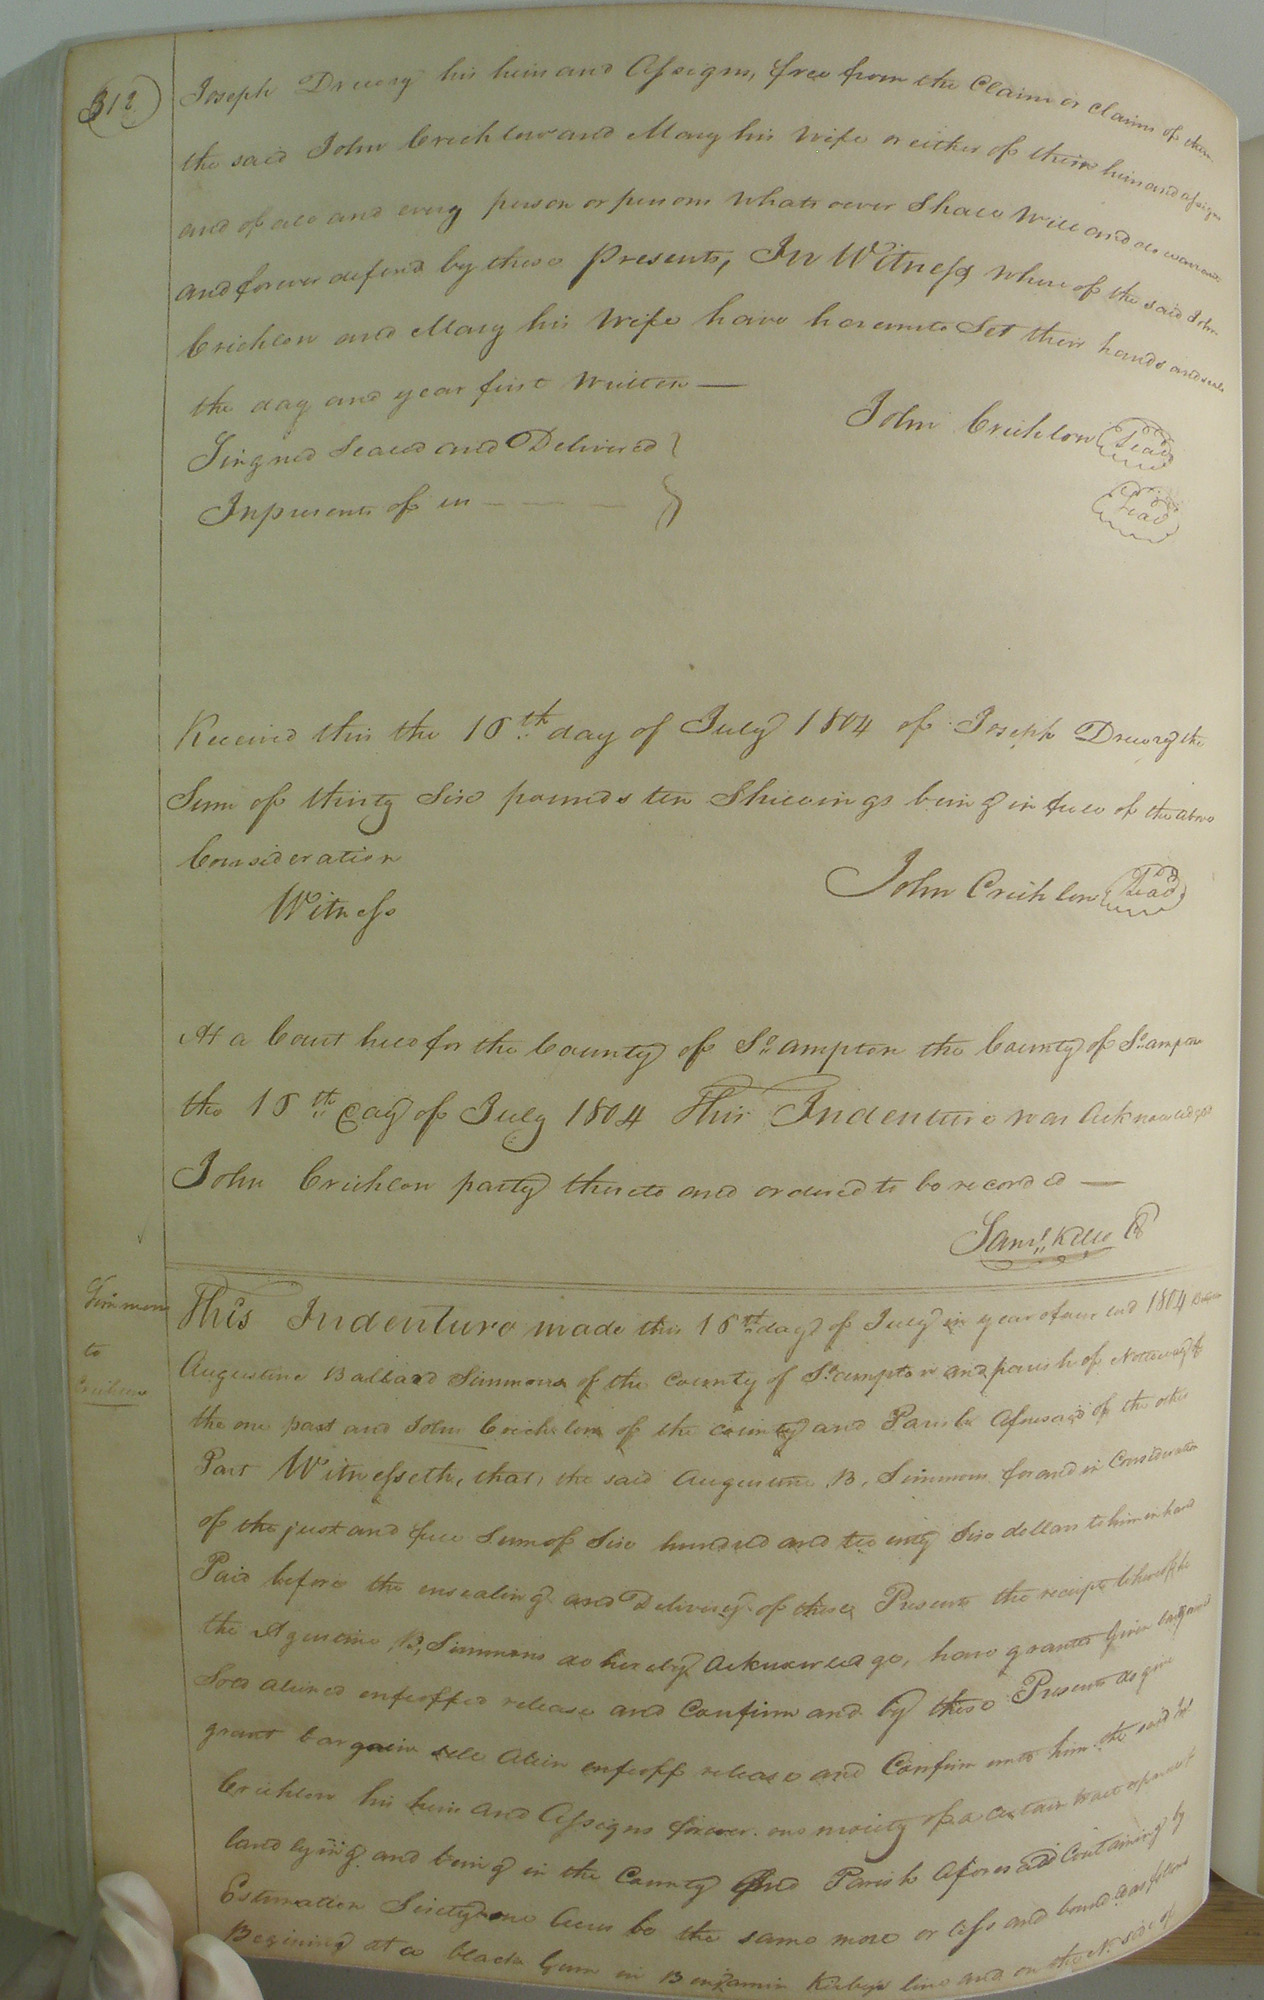 312
Joseph Drewry his heirs and Assigns, free from the Claim or claims of them
the said John Crichlow and Mary his Wife or either of their heirs and assigns
and of all and every person or persons whatsoever Shall Will and do warrant
and forever defend by these Presents, In Witness where of the said John
Crichlow and Mary his Wife have hereunto Set their hands and seals
the day and year first Written —
Singned Sealed and Delivered } John Crichlow Seal
Inpresents of us } Seal
Received this the 16th day of July 1804 of Joseph Drewry the
Sum of thirty Six pounds ten Shillings being in full of the above
Consideration
Witness John Crichlow Seal
At a Court held for the County of So.ampton the County of So.ampton
the 16th day of July 1804 This Indenture was Acknowledged
John Crichlow party thereto and ordered to be recorded —
Saml. Kello
Simmons
to
Crichlow
This Indenture made this 16th day of July in year of our Lord 1804
Augustine Ballard Simmons of the County of So.ampton and parish of Nottoway of
the one part and John Crichlow of the county and Parish Aforesaid of the other
Part Witnesseth, that, the said Augustine B. Simmons for and in Consideration
of the just and full Sum of Six hundred and twenty Six dollars to him in hand
Paid before the ensealing and Delivery of these Presents the receipt whereof he
the Agustine B, Simmons do hereby Acknowledge, have granted given bargained
Sold aliened enfeoffed release and Confirm and by these Presents do give
grant bargain sell Alien enfeoff release and Confirm unto him the said
Crichlow his heirs and Assigns forever one moiety of a certain tract or parcel of
land lying and being in the County and Parish Aforesaid Containing by
Estimation Sixty one Acres be the same more or less and bounded as follows
Begining at a black Gum in Benjamin Kirbys line and on the No side of